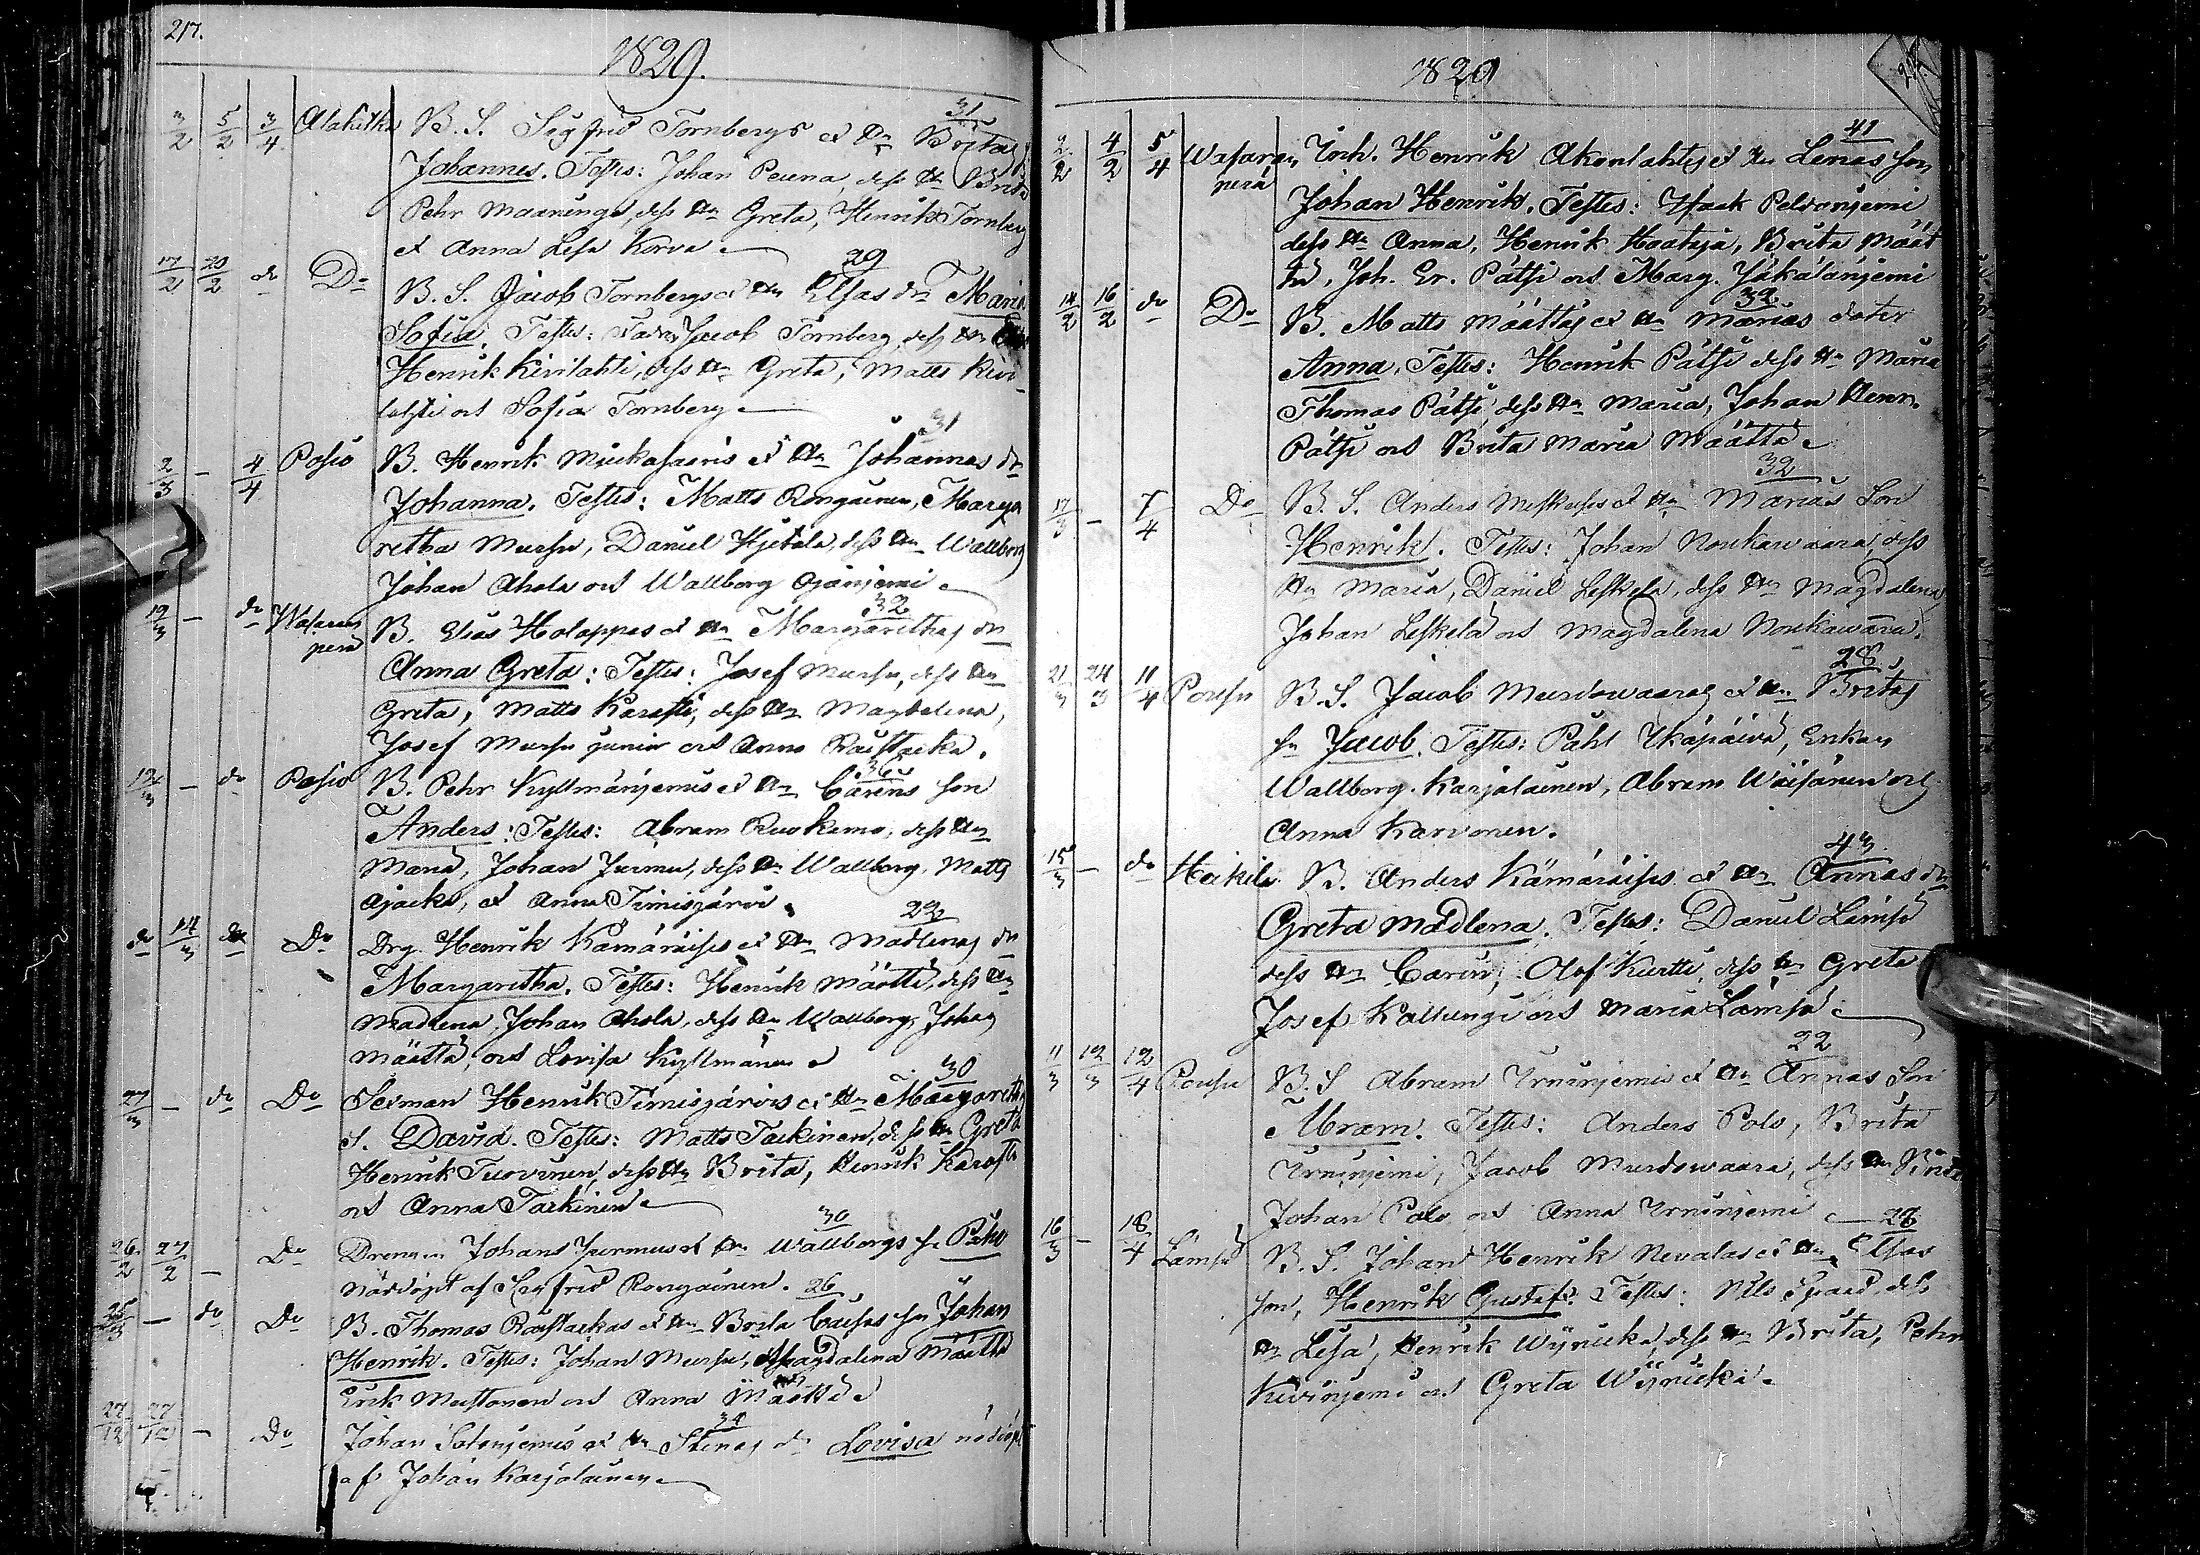 217.
1829.
3/2 5/2 3/4 Alakitka B. S. Sigfrid Tornbergs et Ux Britas 31
Johannes. Testes: Johan Peuna, dess Ux Brita
Pehr Maaninga, dess Ux Greta, Henrik Tornberg
et Anna Lisa Korva
17/2 20/2 do Do B. S. Jacob Tornbergs et Ux Elsas dr Maria 29
Sofia. Testes: Jacob Tornberg, dess Ux
Henrik Kivilahti, dess Ux Greta, Matts Kivi-
lahti och Sofia Tornberg
2/3 – 4/4 Posio B. Henrik Mjukasaaris et Ux Johannas dr 31
Johanna. Testes: Matts Rongainen, Marga
retha Mursu, Daniel Hjetala, dess Ux Wallborg
Johan Ahola och Wallborg Ojanjemi
19/3 – do Wasaran B. Elias Holappas et Ux Margarethas dr 32
perä
Anna Greta: Testes: Josef Mursu, dess Ux
Greta, Matts Karasti, dess Ux Magdalena,
Josef Mursu junior och Anna Raistacka.
14/3 – do Posio B. Pehr Kyllmänjemis et Ux Carins son 36
Anders: Testes: Abram Ruokamo, dess Ux
Maria, Johan Jurmu, dess Ux Wallborg, Matts
Ajacka, et Anna Timisjärvi
do 14/3 do Do Drg. Henrik Kämäräises et Ux Madlenas dr 22
Margaretha. Testes: Henrik Määttä, dess Ux
Madlena, Johan Ahola, dess Ux Wallborg, Johan
Määttä, och Lovisa Kyllmänen
27/3 – do Do Sexman Henrik Timisjärvis et Ux Margareth 30
s. David. Testes: Matts Tackinen, dess Ux Greta
Henrik Turvinen, dess Ux Brita, Henrik Karasti
och Anna Tackinen
26/2 27/2 – Do Drengen Johans Jurmus et Ux Wallborgs sn Påhl 30
nöddöpt af Sigfrid Rongainen.
25/3 – do Do B. Thomas Raistackas et Ux Brita Caisas son Johan 26
Henrik. Testes: Johan Mursu, Magdalena Määttä
Erik Mustonen och Anna Määttä
27/12 27/12 – Do Johan Salonjemis et Ux Stinas dr Lovisa nöddöpt 34
af Johan Karjalainen
1829
2/2 4/2 5/4 Wasaran Inh. Henrik Akonlahtis et Ux Lenas son 41
perä
Johan Henrik. Testes: Isaak Peldonjemi
dess Ux Anna, Henrik Haataja, Brita Määt
tä, Joh. Er. Pätsi och Marg. Jäkälänjemi
14/2 16/2 do Do B. Matts Määttäs et Ux Marias doter 32
Anna, Testes: Henrik Pätsi dess Ux Maria
Thomas Pätsi, dess Ux Maria, Johan Henr.
Pätsi och Brita Maria Määttä
17/3 – 7/4 Do B. S. Anders Muskuses et Ux Marias son 32
Henrik. Testes: Johan Noukawaara, dess
Ux Maria, Daniel Leskelä, dess Ux Magdalena
Johan Leskelä och Magdalena Noukawaara.
21/3 24/3 11/4 Pousu B. S. Jacob Murdowaaras et Ux Britas 28
sn Jacob. Testes: Påhl Ikäpäivä, Enkan
Wallborg Karjalainen, Abram Wäisänen och
Anna Karvonen.
15/3 – do Heikilä B. Anders Kämäräises et Ux Annas dr 43
Greta Madlena. Testes: Daniel Lämsä
dess Ux Carin, Olof Kurtti, dess Ux Greta
Josef Kallungi och Maria Lämsä
11/3 12/3 12/4 Pousu B. S Abram Irninjemis et Ux Annas son 22
Abram. Testes: Anders Polo, Brita
Irninjemi, Jacob Murdowaara, dess Ux Brita
Johan Polo och Anna Irninjemi
16/3 – 18/4 Lämsä B. S. Johan Henrik Nevalas et Ux Elsas 28
son, Henrik Gustaf. Testes: Nils dess
Ux Lisa, Henrik Wÿrickä, dess Ux Brita, Pehr
Kivinjemi och Greta Wÿrickä.